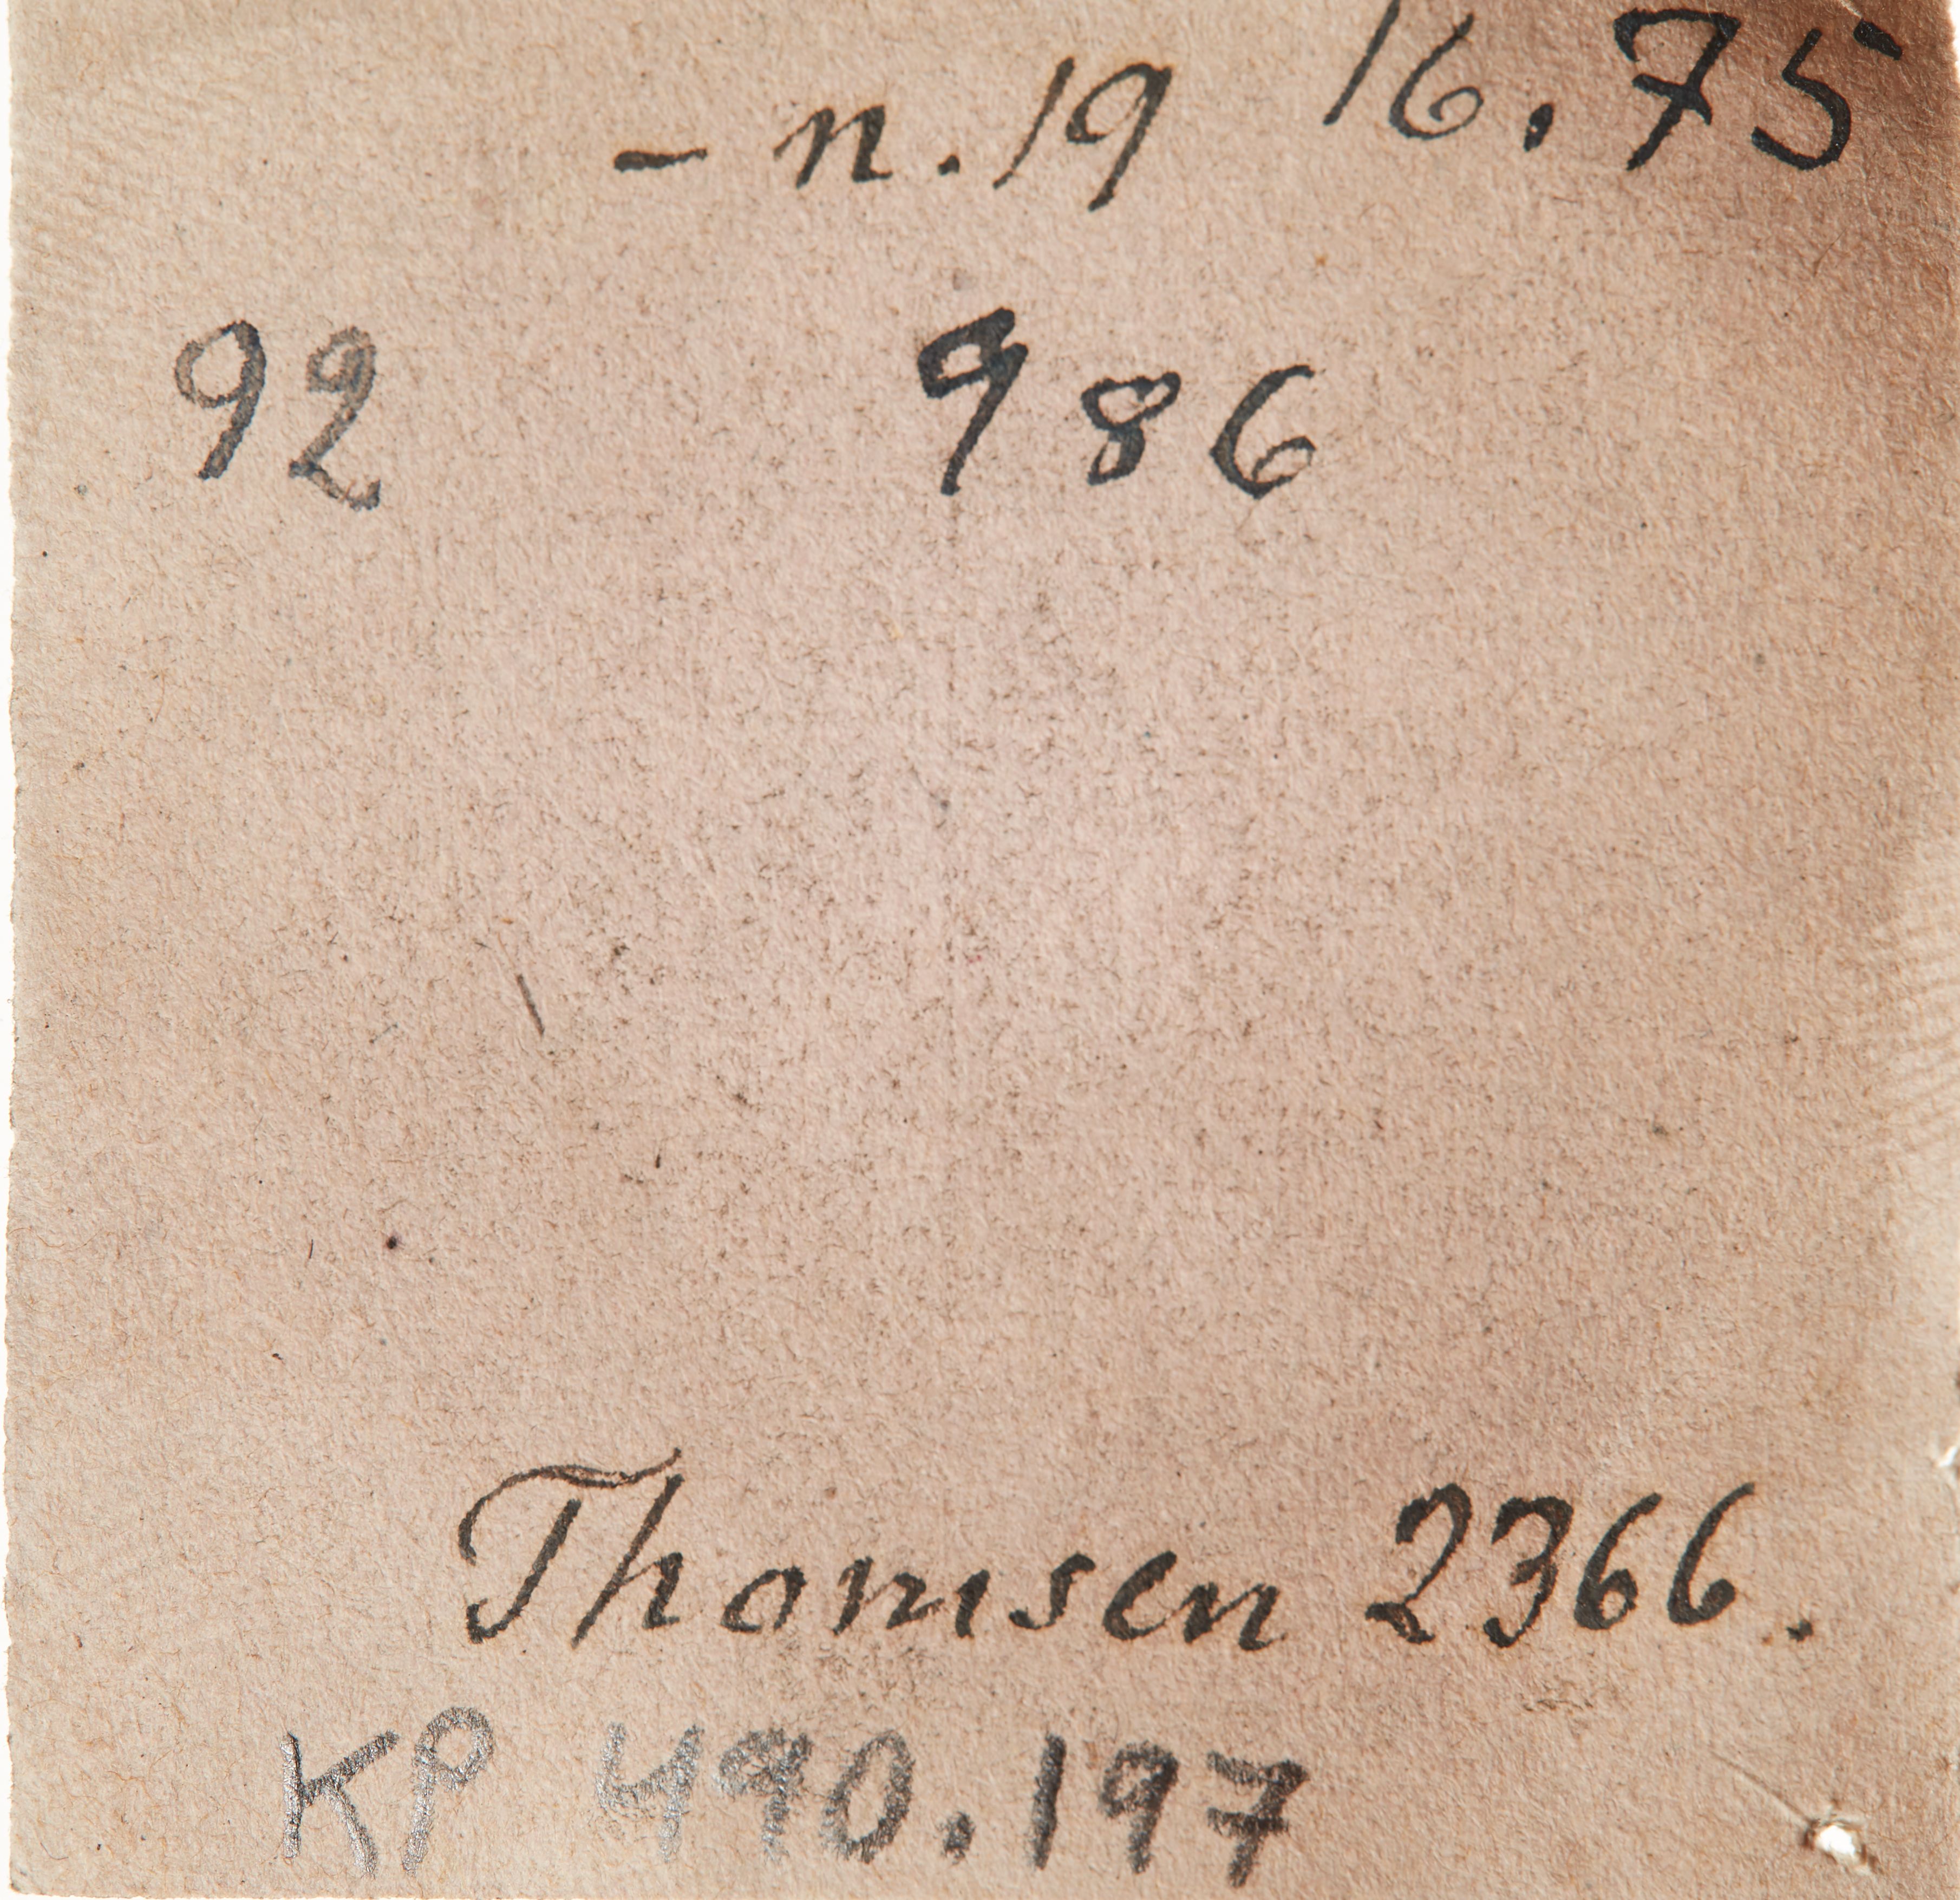 - n. 19 16.75
92 986
Thomsen 2366.
KP 490.197